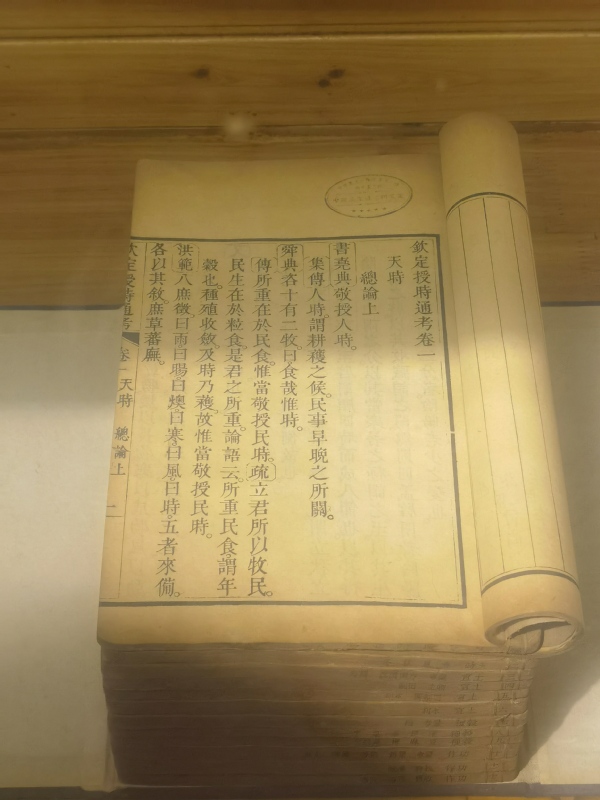 欽定授時通考卷一
天時
總論上
書堯典敬授人時。
集傳人時。謂耕穫之候。民事早晚之所關。
舜典咨十有二牧。曰。食哉惟時。
傳所重在於民食。惟當敬授民時。疏立君所以牧民。
民生在於粒食。是君之所重。論語云。所重民食。謂年
穀也。種殖收斂。及時乃穫。故惟當敬授民時。
洪範八庶徵。曰雨。曰暘。曰燠。曰寒。曰風。曰時。五者來備。
各以其敘。庶草蕃廡。
欽定授時通考 卷一 天時 總論上